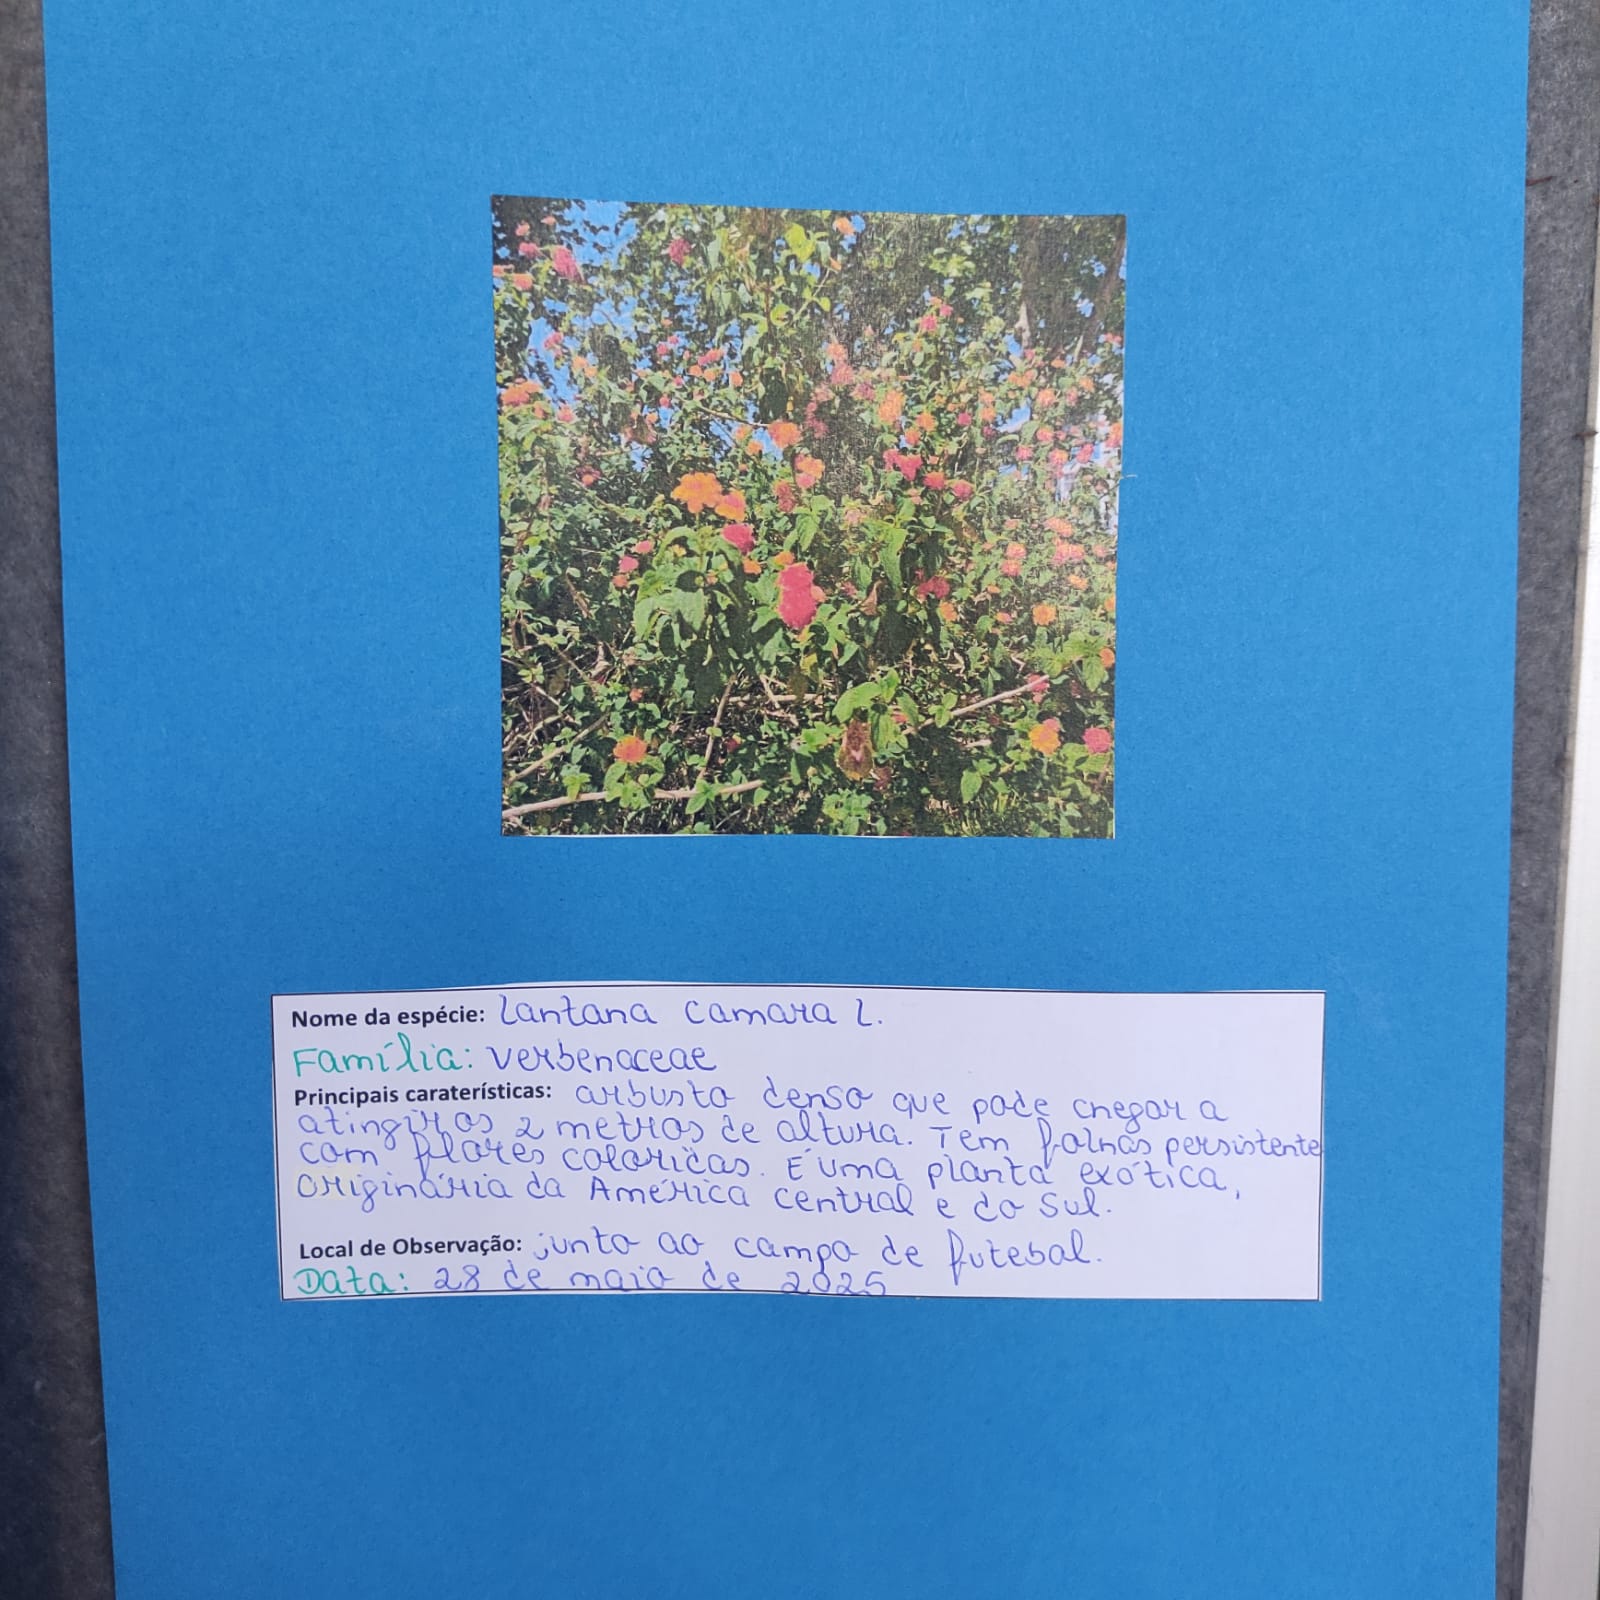 Nome da espécie: Lantana camara L.
Família: Verbenaceae
Principais caraterísticas: arbusto denso que pode chegar a
atingir os 2 metros de altura. Tem folhas persistente
com flores coloridas. É uma planta exótica,
Originária da América central e do Sul.
Local de Observação: junto ao campo de futebol.
Data: 28 de maio de 2025